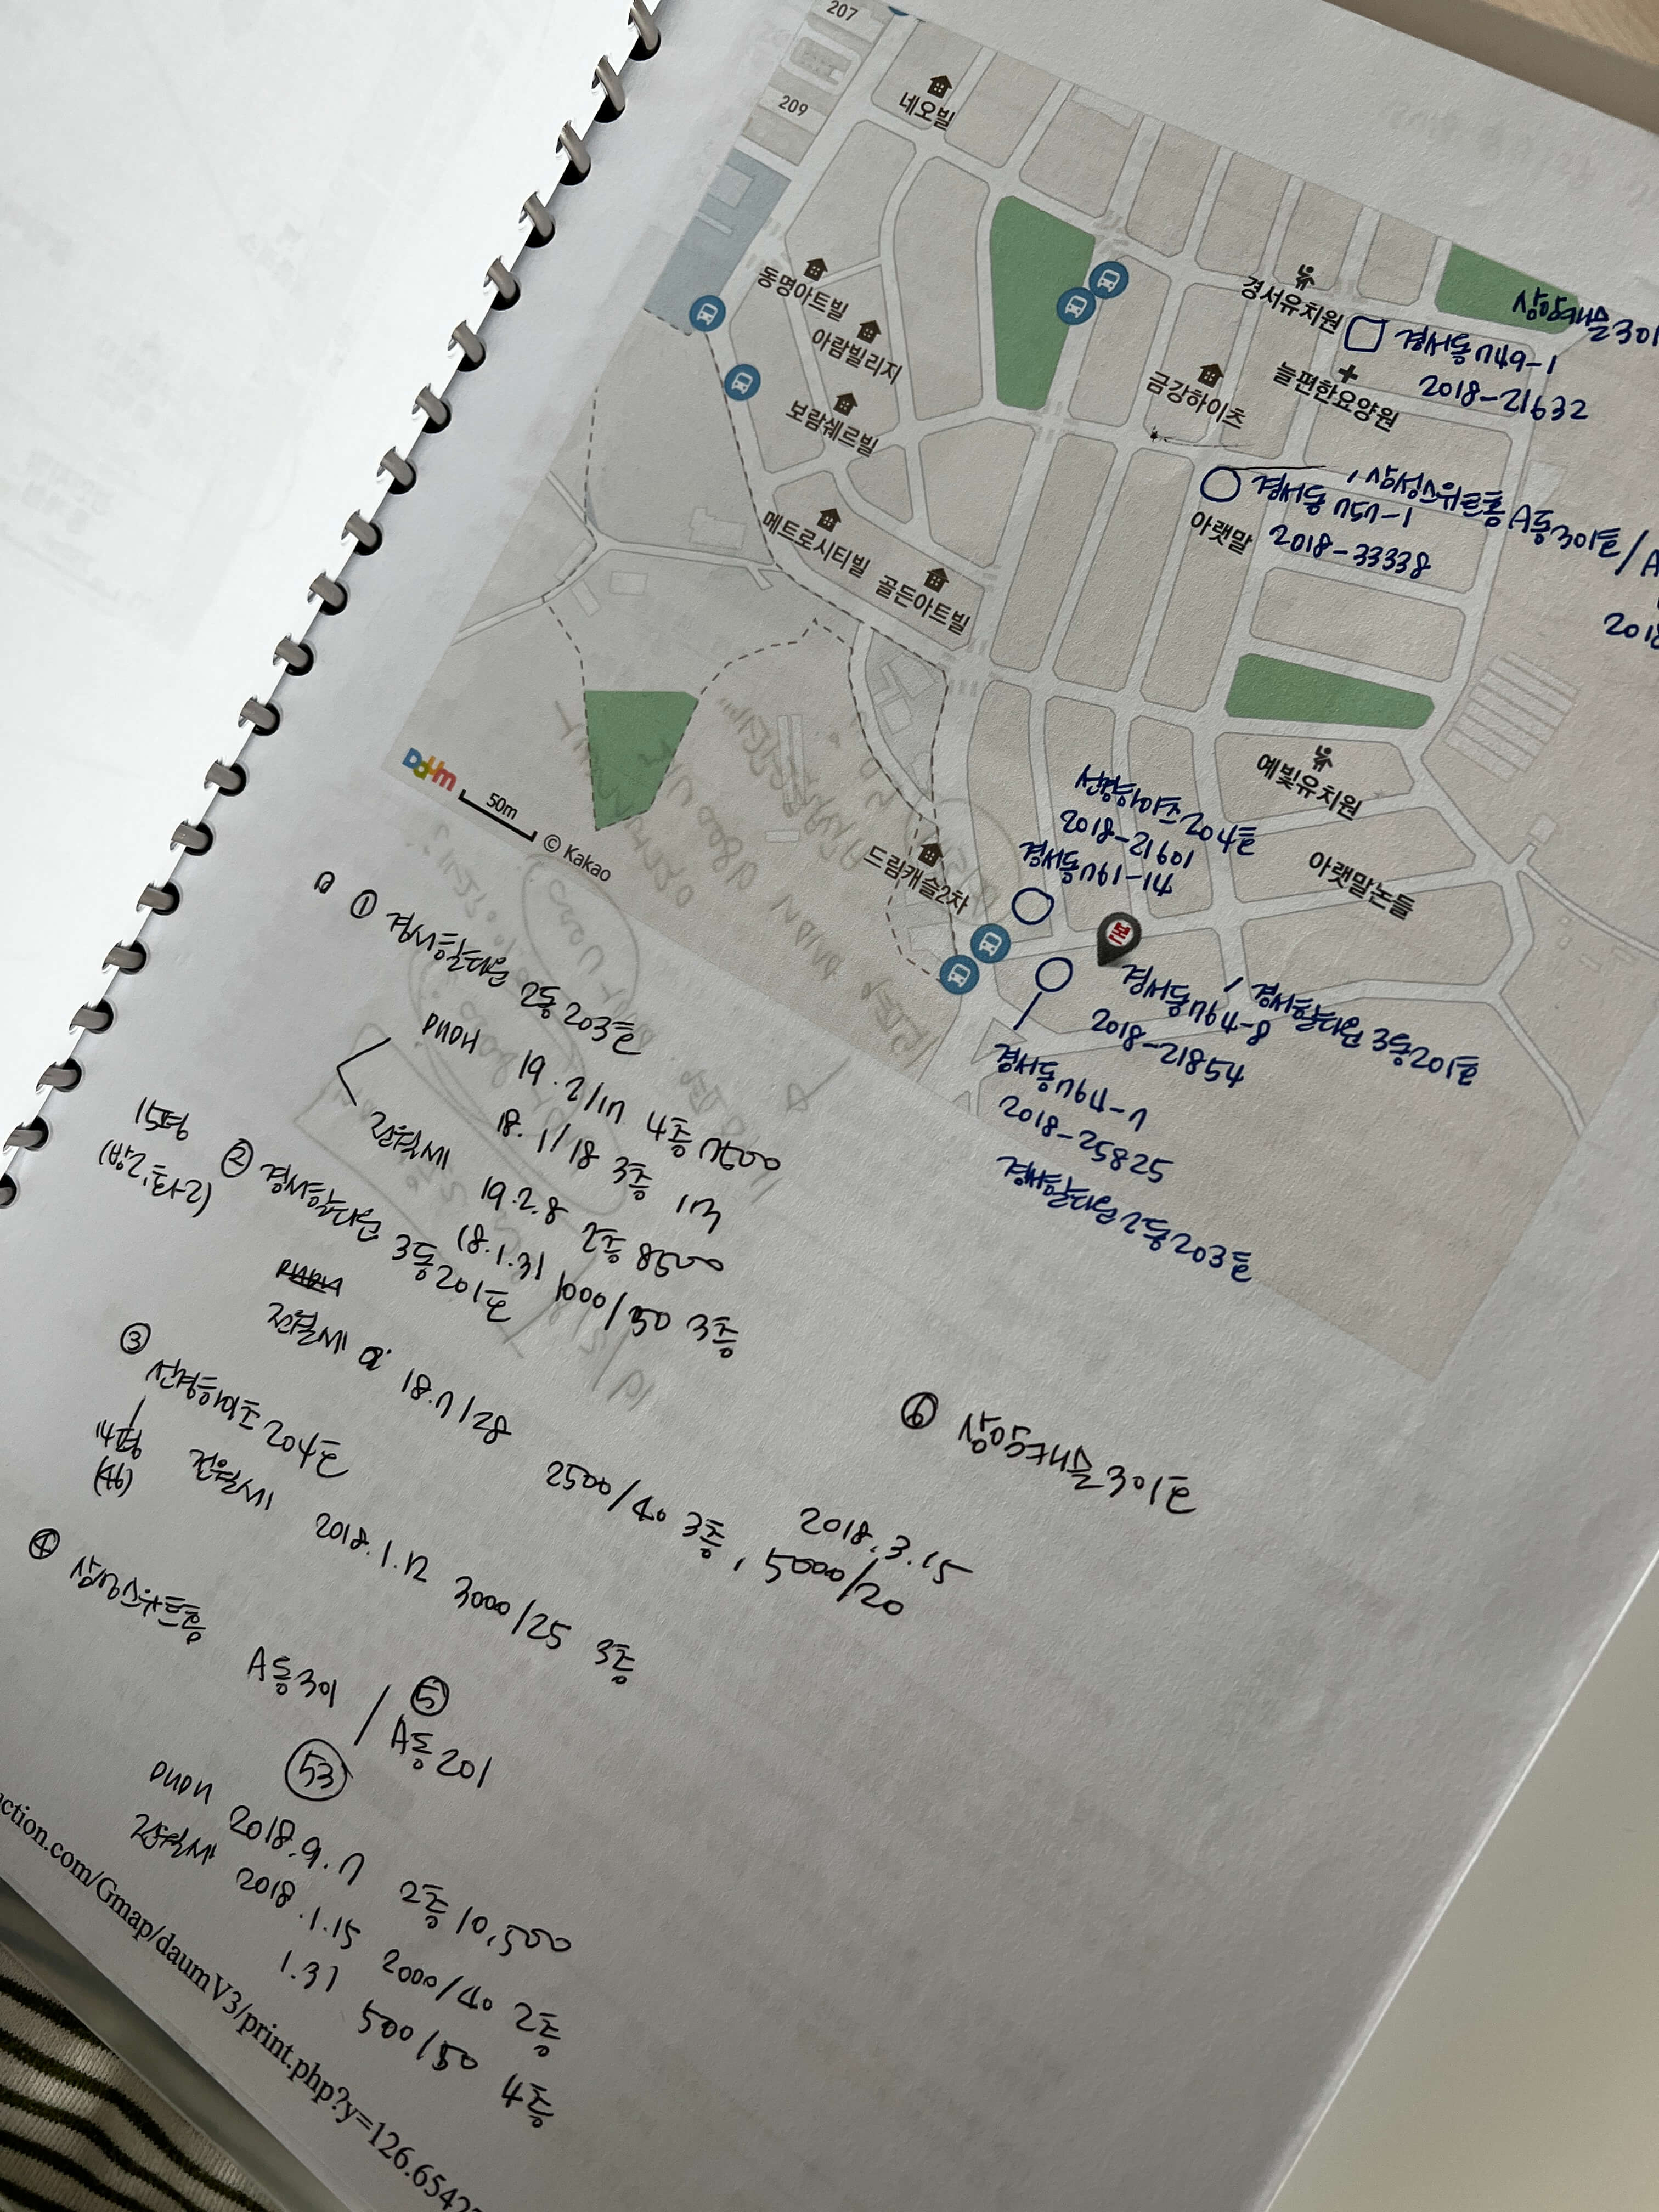 207
209
네오빌
동명아트빌
아람빌리지
보람쉐르빌
메트로시티빌
골든아트빌
경서유치원
금강하이츠
늘편한요양원
아랫말
예빛유치원
아랫말논들
드림캐슬2차
경서동 749-1
2018-21632
삼성스위트홈 A동301호/A
경서동 757-1
2018-33338
2018
204호
2018-21601
경서동761-14
경서동764-8
경서힐타운 3동201호
2018-21854
경서동764-7
2018-25825
경서힐타운 2동203호
Daum
50m
© Kakao
① 경서힐타운 2동 203호
매매 19.2/17 4층 7500
18.1/18 3층 1억
전월세 19.2.8 2층 8500
18.1.31 1000/50 3층
15평
(방2, 화2)
② 경서힐타운 3동201호
전월세 18.7/28 2500/40 3층, 5000/20
③ 204호
14평
(46)
전월세 2018.1.12 3000/25 3층
④ 삼성스위트홈 A동301 / ⑤ A동201
53
매매 2018.9.7 2층 10,500
전월세 2018.1.15 2000/40 2층
1.31 500/50 4층
⑥ 301호
2018.3.15
ction.com/Gmap/daumV3/print.php?y=126.6542